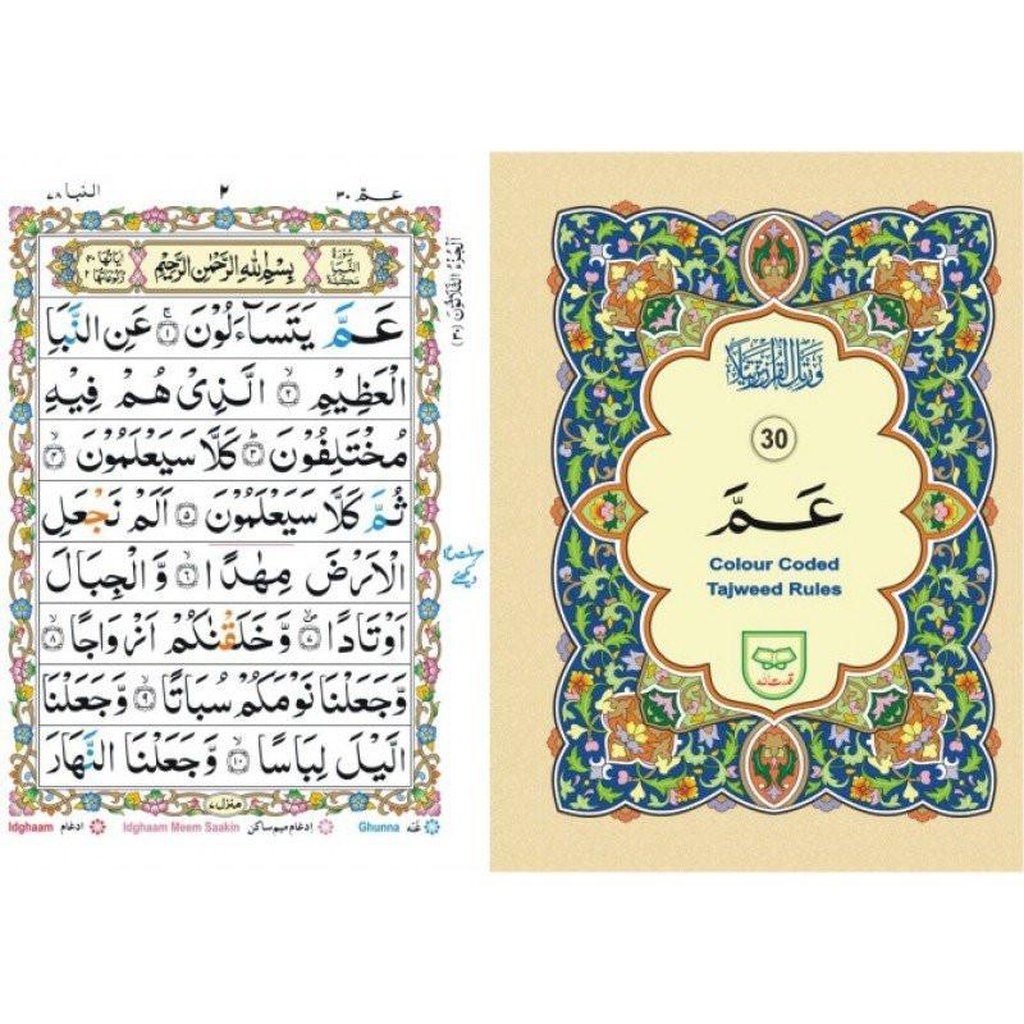 عــمّ ٣٠
٢
النبا ٧٨
سُوْرَةُ النَّبَا مَكِّيَّةٌ
بِسْمِ اللّٰهِ الرَّحْمٰنِ الرَّحِيْمِ
اٰيَاتُهَا ٤٠ رُكُوْعَاتُهَا ٢
عَـمَّ يَتَسَآءَلُوْنَ ۚ‏ ١ عَنِ النَّبَاِ
الْعَظِيْمِ ۙ ٢ الَّذِىْ هُمْ فِيْهِ
مُخْتَلِفُوْنَ ؕ ٣ كَلَّا سَيَعْلَمُوْنَ ۙ ٤
ثُمَّ كَلَّا سَيَعْلَمُوْنَ ٥ اَلَمْ نَجْعَلِ
الْاَرْضَ مِهٰدًا ۙ ٦ وَّالْجِبَالَ
اَوْتَادًا ۙ ٧ وَّخَلَقْنٰكُمْ اَزْوَاجًا ۙ ٨
وَّجَعَلْنَا نَوْمَكُمْ سُبَاتًا ۙ ٩ وَّجَعَلْنَا
الَّيْلَ لِبَاسًا ۙ ١٠ وَّجَعَلْنَا النَّهَارَ
منزل ٧
اَلْجُزْءُ الثَّلَاثُوْنَ (٣٠)
دیکھئے
Idghaam ادغام
Idghaam Meem Saakin ادغام میم ساکن
Ghunna غنّہ
وَرَتِّلِ الْقُرْاٰنَ تَرْتِيْلًا
30
عَـمَّ
Colour Coded
Tajweed Rules
قدرت اللہ